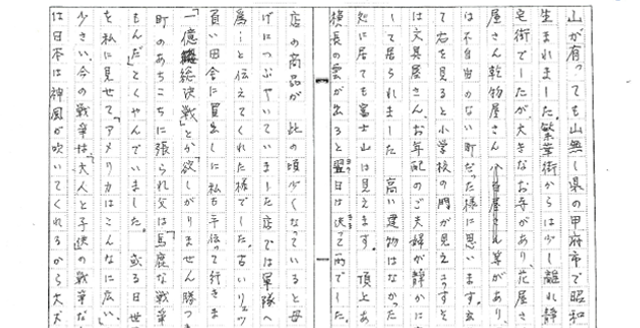 山が有っても山無し県の甲府市で昭和
生まれました。繁華街からは少し離れ静
宅街でしたが、大きなお寺があり、花屋さ
屋さん乾物屋さん 八百屋さん等があり、
は不自由のない町だった様に思います。玄
て右を見ると小学校の門が見えこっすぐ
は文具屋さん、お年配のご夫婦が静かに
して居られました 高い建物はなかった
処に居ても富士山は見えます。 頂上あ
横長の雲が出ると翌日は決って雨でした。
店の商品が 此の頃少くなっていると母
げにつぶやいていました店では軍隊へ
為ーと伝えてくれた様でした。古いリュッ
負い田舎に買出しに私も手伝って行きま
「一億総決戦」とか「欲しがりません勝つま
町のあちこちに張られ父は「馬鹿な戦争
もんだ」とくやんでいました。 或る日世
を私に見せて「アメリカはこんなに広い。
少さい、今の戦争は、大人と子供の戦争な
は日本は神風が吹いてくれるから大丈